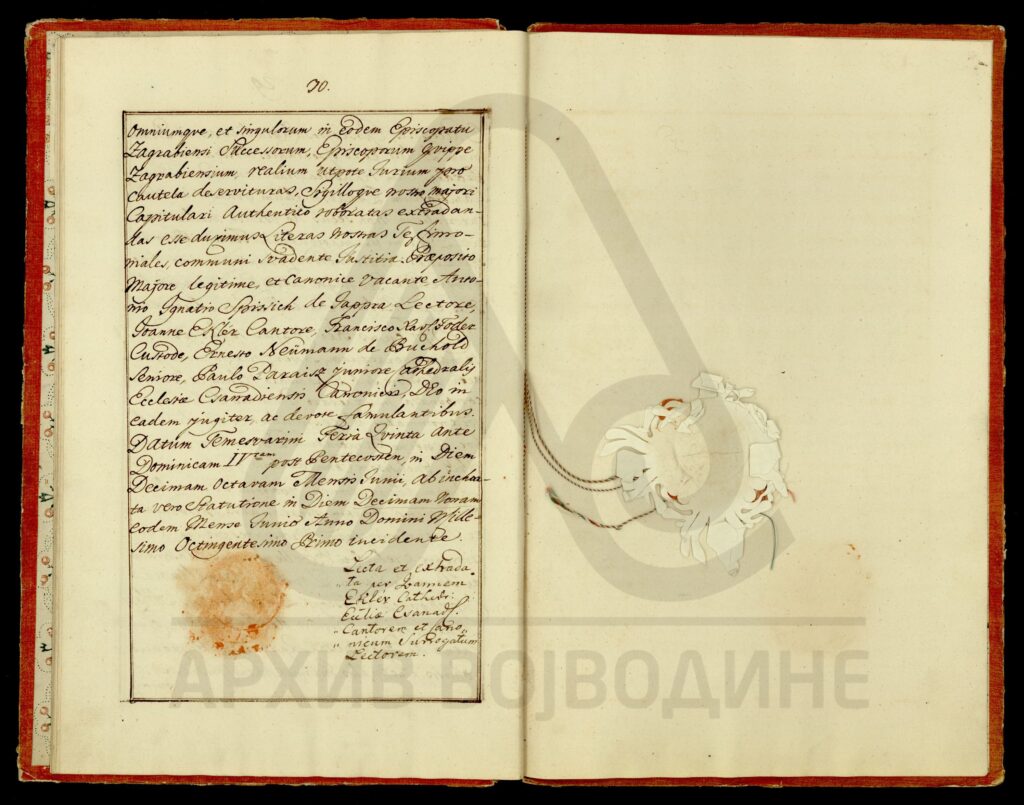 70.
Omniumqve, et singulorum in eodem Episcopatu
Zagrabiensi Successorum, Episcoporum qvippe
Zagrabiensium, realium utpote Jurium pro
cautela deservituras, Sigilloqve nostro majori
Capitulari Authentico roboratas extradan-
das esse duximus Literas Nostras Testimo-
niales, communi svadente Justitia. Præposito
Majore legitime, et Canonice Vacante, Anto-
nio Ignatio Spissich de Jappra Lectore,
Joanne Ekler Cantore, Francisco Xav.
Custode, Ernesto Neümann de Buchold
Seniore, Paulo Juniore Cathedralis
Ecclesiæ Csanadiensis Canonicis, DEo in
eadem jugiter, ac devote famulantibus.
Datum Temesvarini Feria Qvinta ante
Dominicam IVtam post Pentecosten, in Diem
Decimam Octavam Mensis Junii, ab inchoa-
ta vero Statutione in Diem Decimam Novam
eodem Mense Junio Anno Domini Mille-
simo Octingentesimo Primo incidente.
Lecta et extrada
ta per Joannem
Ekler Cathedr:
Eccliæ Csanad.
Cantorem et Cano
nicum Surrogatum
Lectorem.
АРХИВ ВОЈВОДИНЕ